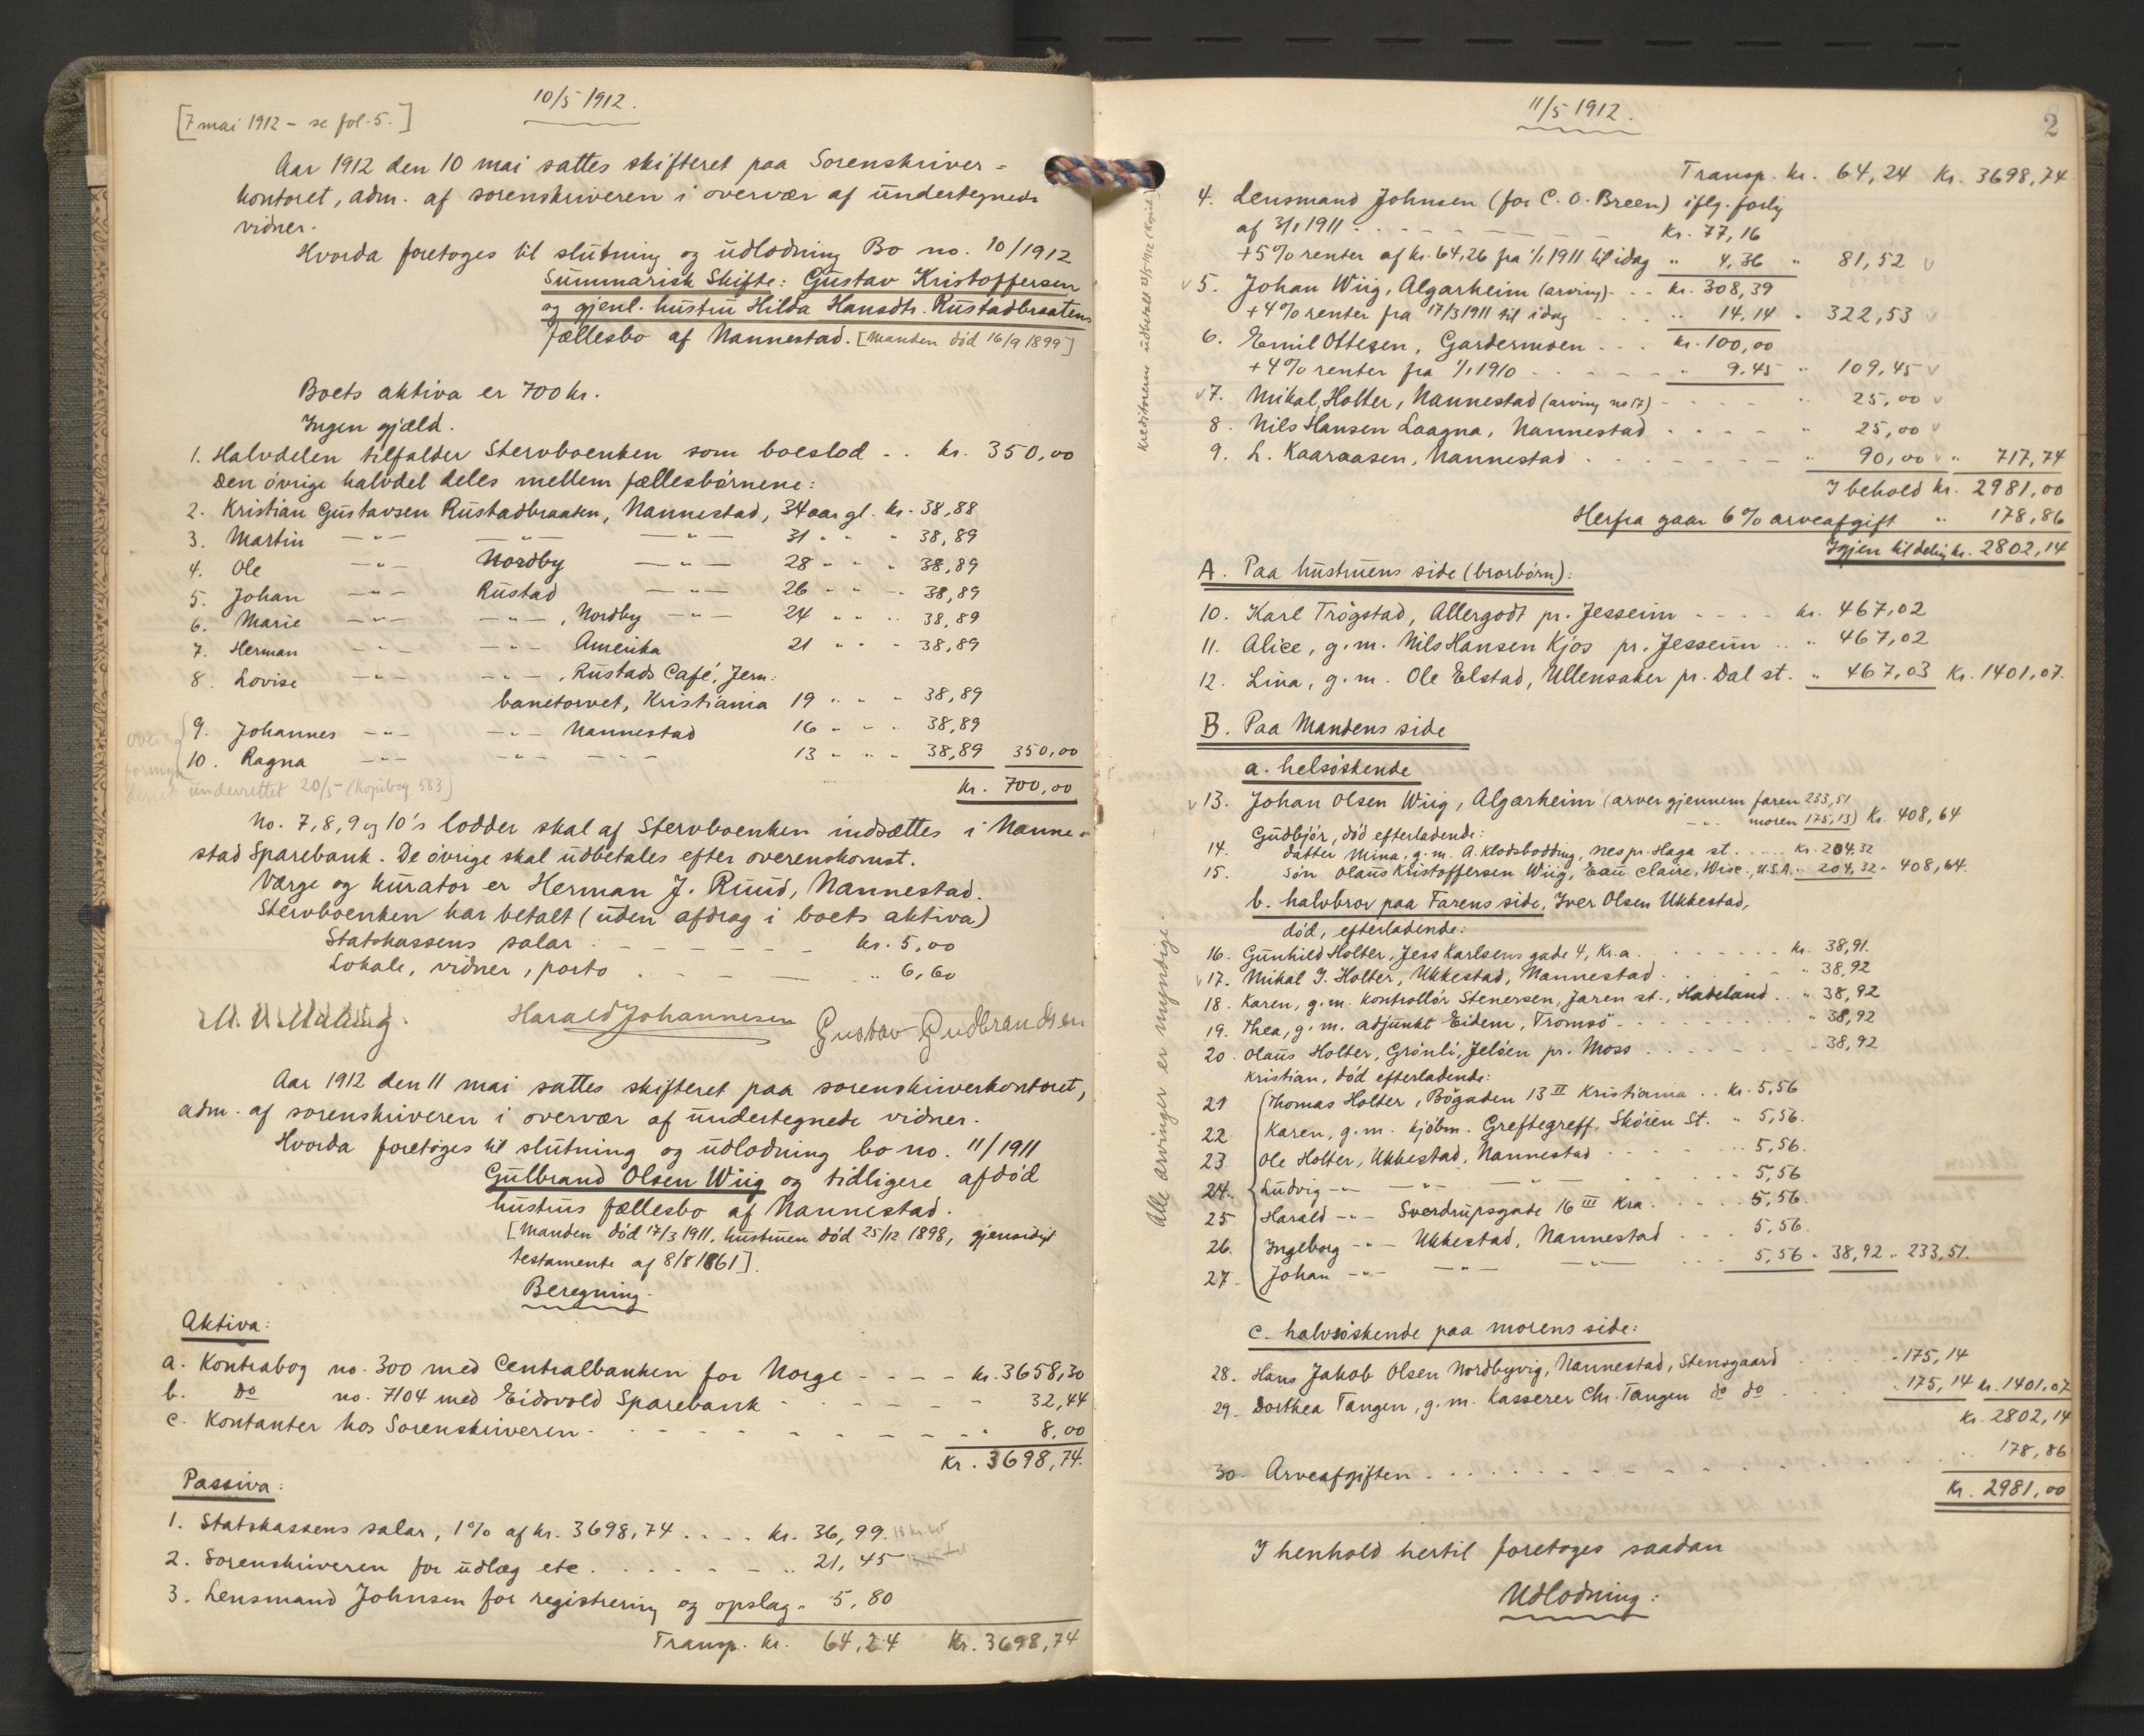 10/5 1912.
[7 mai 1912 – se fol. 5.]
Aar 1912 den 10 mai sattes skifteret paa Sorenskriver=
kontoret, adm. af sorenskriveren i overvær af undertegnede
vidner.
Hvorda foretoges til slutning og udlodning Bo no. 10/1912
Summarisk Skifte: Gustav Kristoffersen
og gjenl. hustru Hilda Hansdtr. Rustadbraatens
fællesbo af Nannestad. [Manden död 16/9 1899]
Boets aktiva er 700 kr.
Ingen gjæld.
1. Halvdelen tilfalder Stervboenken som boeslod . . kr. 350,00
Den övrige halvdel deles mellem fællesbörnene:
2. Kristian Gustavsen Rustadbraaten, Nannestad, 34 aar gl. kr. 38,88
3. Martin —"— —"— —"— 31 " " " 38,89
4. Ole —"— Nordby —"— 28 " " " 38,89
5. Johan —"— Rustad —"— 26 " " " 38,89
6. Marie —"— —"—, Nordby —"— 24 " " " 38,89
7. Herman —"— —"— Amerika 21 " " " 38,89
8. Lovise —"— —"—, Rustads Café, Jern=
banetorvet, Kristiania 19 " " " 38,89
9. Johannes —"— —"— Nannestad 16 " " " 38,89
10. Ragna —"— —"— —"— 13 " " " 38,89 350,00
underrettet 20/5 (Kopibog 583)
kr. 700,00
No. 7, 8, 9 og 10's lodder skal af Stervboenken indsættes i Nanne=
stad Sparebank. De övrige skal udbetales efter overenskomst.
Værge og kurator er Herman J. Ruud, Nannestad.
Stervboenken har betalt (uden afdrag i boets aktiva)
Statskassens salar . – – – – kr. 5,00
Lokale, vidner, porto . – – – " 6,60
Harald Johannesen Gustav Gudbrandsen
Aar 1912 den 11 mai sattes skifteret paa sorenskriverkontoret,
adm. af sorenskriveren i overvær af undertegnede vidner.
Hvorda foretoges til slutning og udlodning bo no. 11/1911
Gulbrand Olsen Wiig og tidligere afdöd
hustrus fællesbo af Nannestad.
[Manden död 17/3 1911, hustruen död 25/12 1898, gjensidigt
testamente af 8/8 1861].
Beregning.
Aktiva:
a. Kontrabog no. 300 med Centralbanken for Norge – – – – kr. 3658,30
b. Do no. 7104 med Eidsvold Sparebank – – – – 32,44
c. Kontanter hos Sorenskriveren – – – – 8,00
Kr. 3698,74.
Passiva:
1. Statskassens salar, 1% af kr. 3698,74 . . . . kr. 36,99.
2. Sorenskriveren for udlæg etc. . . . . " 21,45
3. Lensmand Johnsen for registrering og opslag " 5,80
Transp. kr. 64,24 Kr. 3698,74
11/5 1912.
2
Transp. kr. 64,24 Kr. 3698,74
4. Lensmand Johnsen (for C. O. Breen) iflg. forlig
af 3/1 1911 . . . . . Kr. 77,16
+5% renter af kr. 64,26 fra 1/1 1911 til idag " 4,36 " 81,52
5. Johan Wiig, Algarheim (arving) . . . kr. 308,39
+4% renter fra 17/3 1911 til idag . . . " 14,14 " 322,53
6. Emil Ottesen, Gardermoen . . . kr. 100,00
+4% renter fra 1/1 1910 – – – – " 9,45 " 109,45
7. Mikal Holter, Nannestad (arving no 17) – – – " 25,00
8. Nils Hansen Laagna, Nannestad . . . . " 25,00
9. L. Kaaraasen, Nannestad . . . . " 90,00 " 717,74
I behold kr. 2981,00
Herfra gaar 6% arveafgift " 178,86
Igjen til deling kr. 2802,14
A. Paa hustruens side (brorbörn):
10. Karl Trögstad, Allergodt pr. Jesseim – – – – kr. 467,02
11. Alice, g. m. Nils Hansen Kjos pr. Jesseim . . " 467,02
12. Lina, g. m. Ole Elstad, Ullensaker pr. Dal st. " 467,03 Kr. 1401,07.
B. Paa Mandens side
a. helsöskende
13. Johan Olsen Wiig, Algarheim (arver gjennem faren 233,51
—"— moren 175,13) Kr. 408,64
Gudbjör, död efterladende:
14. datter Mina, g. m. A. Klodsbodding, Nes pr. Haga st. . . . . kr. 204,32
15. sön Olaus Kristoffersen Wiig, Eau Claire, Wisc., U.S.A. " 204,32 " 408,64.
b. halvbror paa Farens side, Iver Olsen Ukkestad,
död, efterladende:
16. Gunhild Holter, Jess Karlsens gade 4, Kr.a . . . . . kr. 38,91.
17. Mikal I. Holter, Ukkestad, Nannestad . . . . " 38,92
18. Karen, g. m. kontrollör Stenersen, Jaren st., Hadeland . . " 38,92
19. Thea, g. m. adjunkt Eidem, Tromsö . . . . . " 38,92
20. Olaus Holter, Grönli, Jelöen pr. Moss . . . . . " 38,92
Kristian, död efterladende:
21 Thomas Holter, Bögaden 13 II Kristiania . . kr. 5,56
22 Karen, g. m. kjöbm. Greftegreff, Sköien St. " 5,56.
23 Ole Holter, Ukkestad, Nannestad . . . . 5,56.
24. Ludvig —"— —"— —"— . . . 5,56
25 Harald —"— Sverdrupsgade 16 III Kra. . . . . 5,56.
26. Ingeborg —"— Ukkestad, Nannestad . . . 5,56.
27. Johan —"— —"— —"— . . . 5,56 " 38,92 " 233,51.
c. halvsöskende paa morens side:
28. Hans Jakob Olsen Nordbyvig, Nannestad, Stensgaard . . . " 175,14
29. Dorthea Tangen, g. m. Kasserer Chr. Tangen do do . . . " 175,14 kr. 1401,07
Kr. 2802,14
30. Arveafgiften . . . . . . . . " 178,86
Kr. 2981,00
I henhold hertil foretoges saadan
Udlodning:
Alle arvinger er myndige.